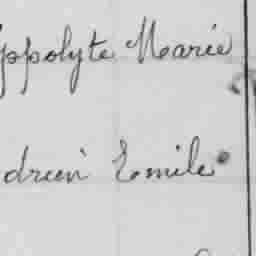 ppolyte Marie
drien Emile